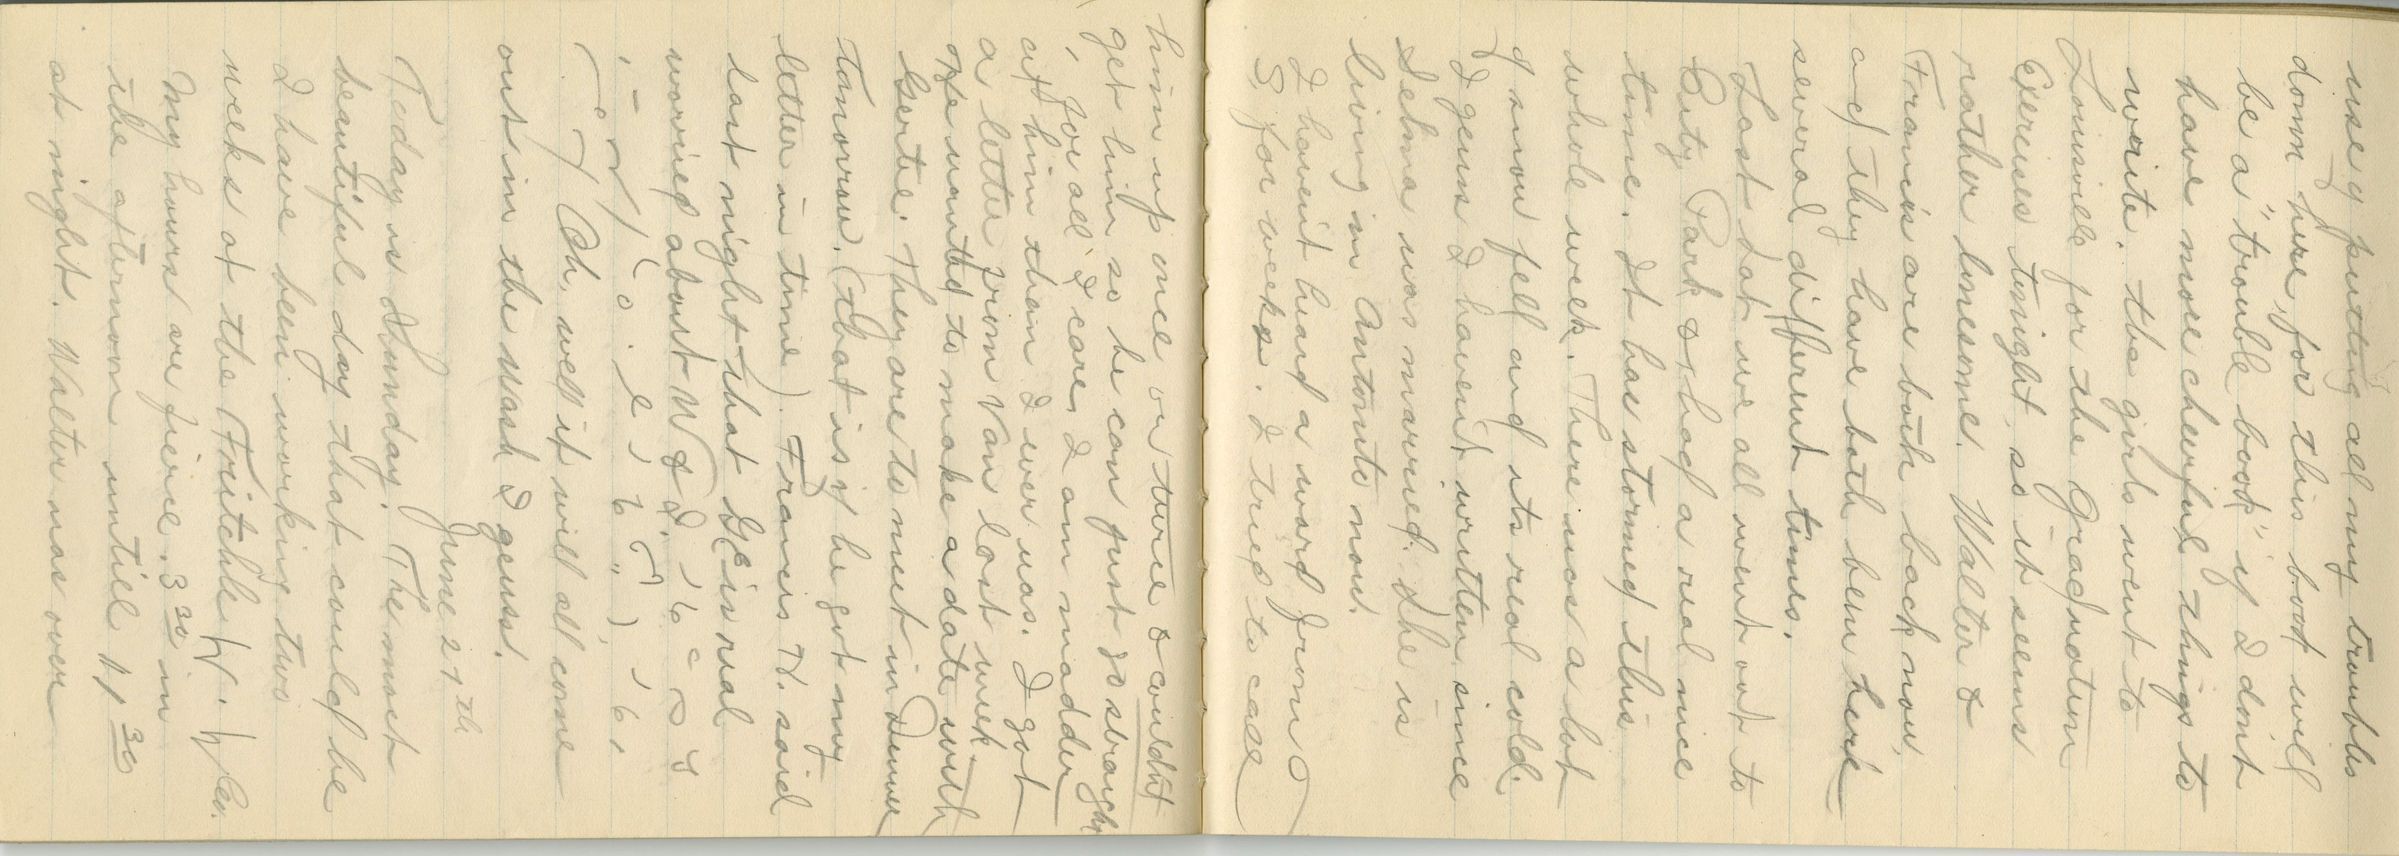 use of putting all my troubles
down here, for this book will
be a "trouble book" if I don't
have more cheerful things to
write. the girls went to
Louisville for the Graduation
Exercises tonight, so it seems
rather lonesome. Walter &
Francis are both back now,
and they have both been here
several different times.
Last Sat we all went out to
City Park & had a real nice
time. It has stormed this
whole week. There was a lot
of snow fell and its real cold.
I guess I havent written since
Selma was married. She is
living in Antonito now.
I havent heard a word from
S for weeks. I tried to call
him up once or twice & couldnt
get him so he can just go straight
, for all I care, I am madder
at him than I ever was. I got
a letter from Van last week.
He wanted to make a date with
Gertie. They are to meet in Denver
Tomorrow. (that is if he got my
letter in time). Francis H. said
last night that G. is real
worried about W & I.
Oh, well it will all come
out in the wash I guess.
June 27th
Today is Sunday. The most
beautiful day that could be
I have been working two
weeks at the Fritchle
My hours are five. 3 30 in
the afternoon untill 11 30
at night. Walter was over